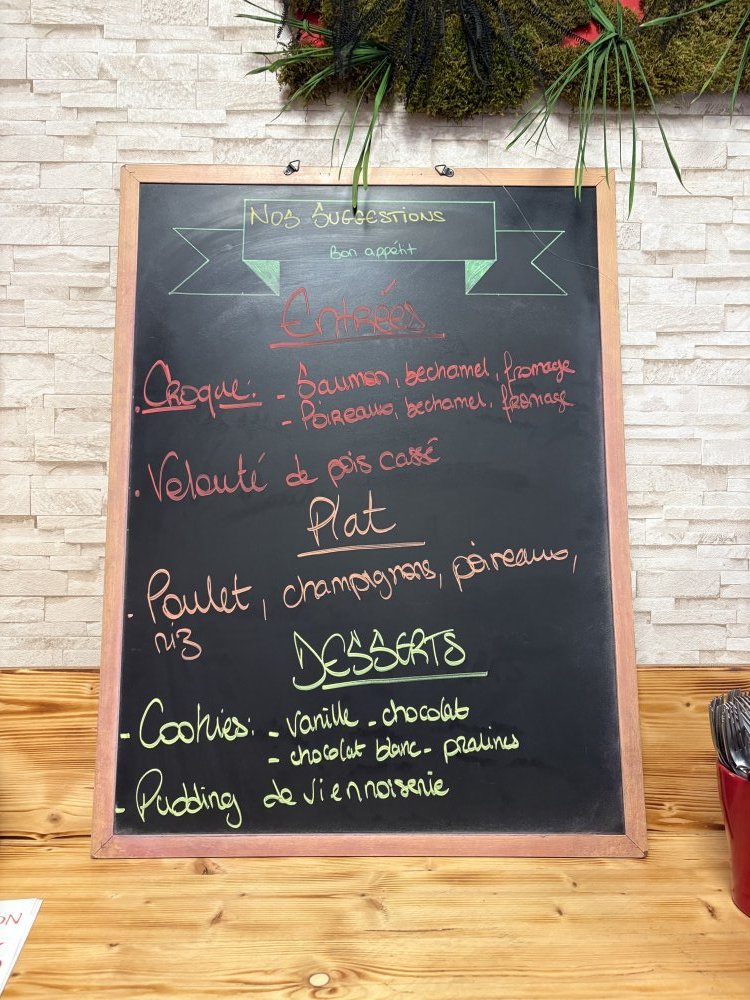 NOS SUGGESTIONS
Bon appétit
Entrées
. Croque: - Saumon, bechamel, fromage
- Poireaux, bechamel, fromage
. Velouté de pois cassé
Plat
. Poulet, champignons, poireaux,
riz
DESSERTS
- Cookies: - vanille - chocolat
- chocolat blanc - pralines
- Pudding de viennoiserie
ON